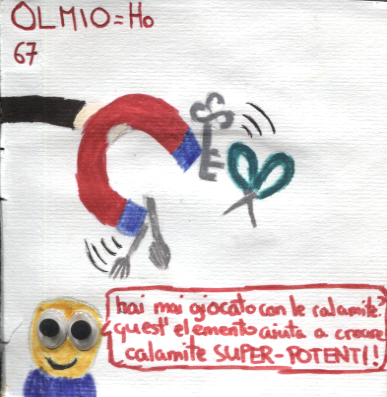 OLMIO=Ho
67
hai mai giocato con le calamite?
quest'elemento aiuta a creare
calamite SUPER-POTENTI!!